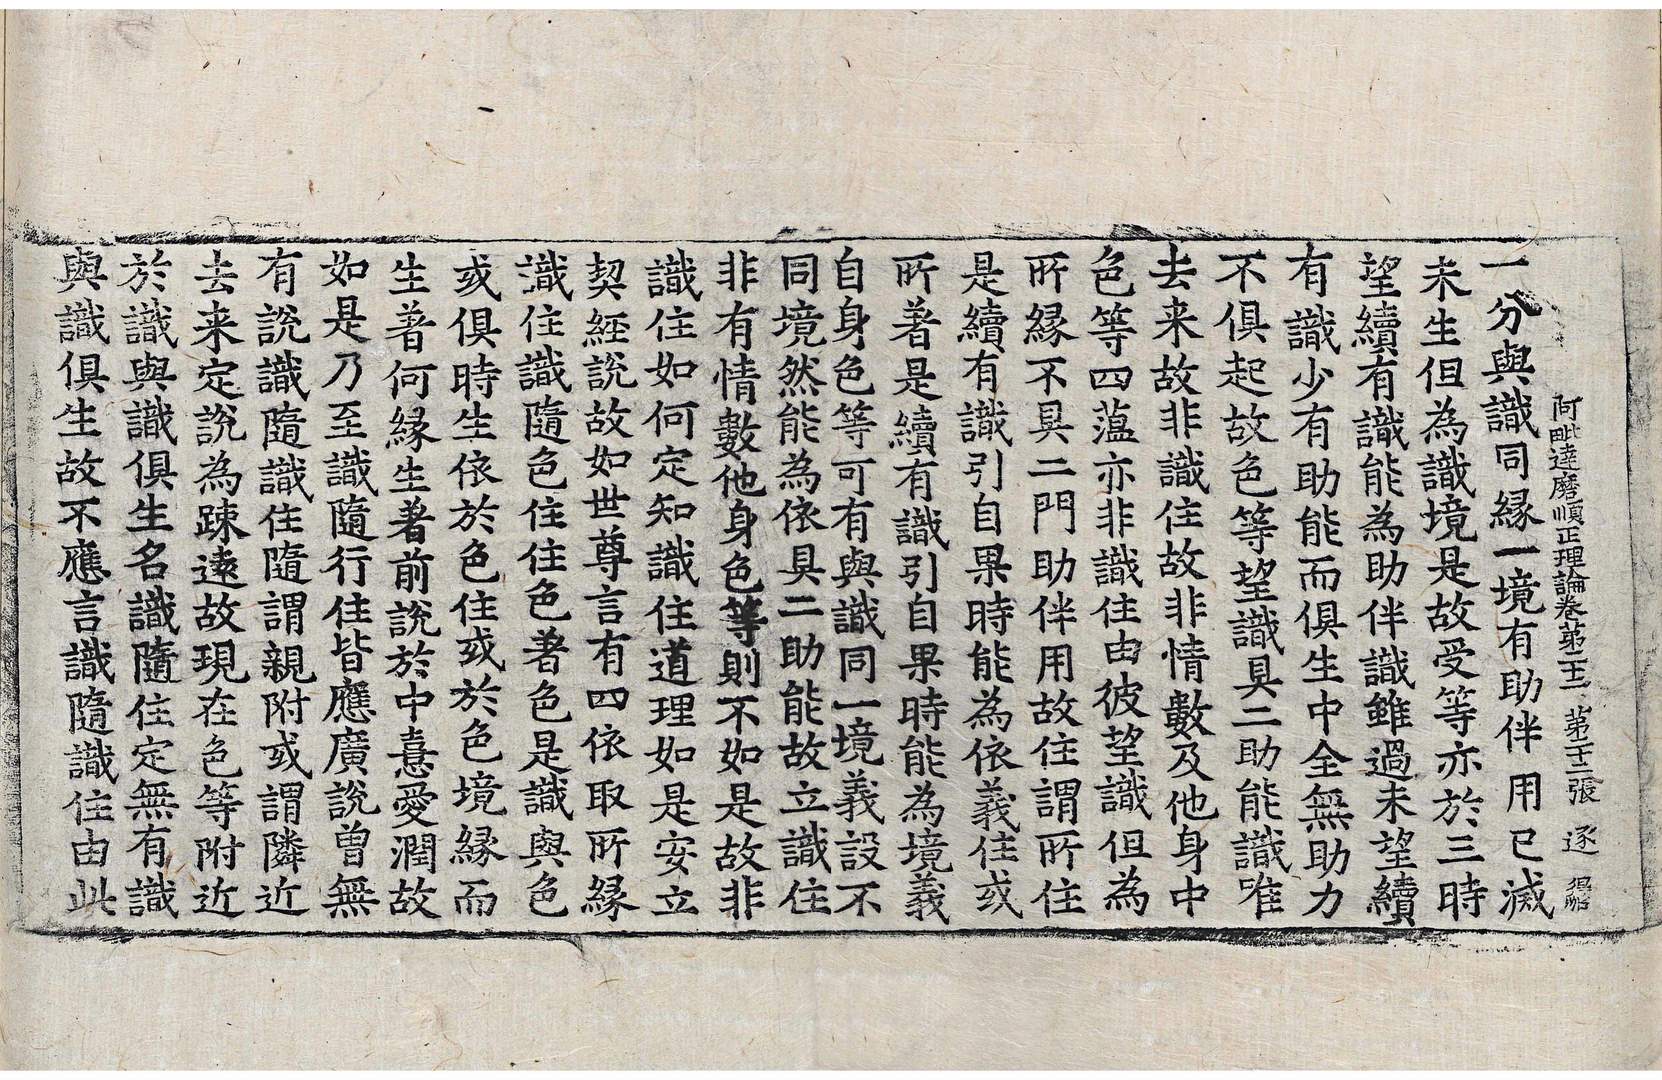 阿毗達磨順正理論卷第二十二 第十二張 逐
一分與識同緣一境有助伴用已滅
未生但為識境是故受等亦於三時
望續有識能為助伴識雖過未望續
有識少有助能而俱生中全無助力
不俱起故色等望識具二助能識唯
去来故非識住故非情數及他身中
色等四蘊亦非識住由彼望識但為
所緣不具二門助伴用故住謂所住
是續有識引自果時能為依義住或
所著是續有識引自果時能為境義
自身色等可有與識同一境義設不
同境然能為依具二助能故立識住
非有情數他身色等則不如是故非
識住如何定知識住道理如是安立
契經說故如世尊言有四依取所緣
識住識隨色住住色著色是識與色
或俱時生依於色住或於色境緣而
生著何緣生著前說於中憙愛潤故
如是乃至識隨行住皆應廣說曾無
有說識隨識住隨謂親附或謂隣近
去来定說為踈遠故現在色等附近
於識與識俱生名識隨住定無有識
與識俱生故不應言識隨識住由此